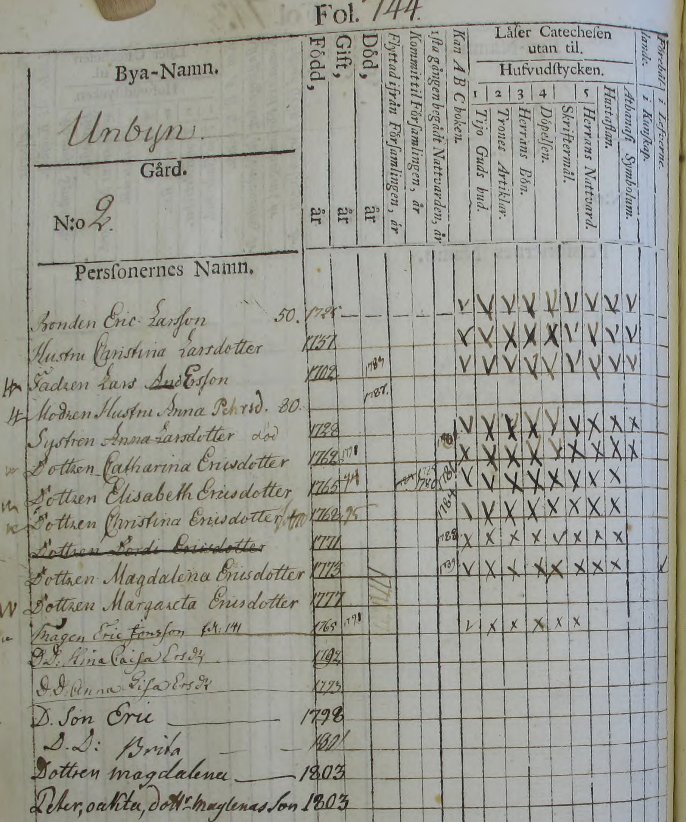 Fol. 144.
Bya-Namn.
Unbyn.
Gård.
N:o 2.
Personernes Namn.
Född, år
Gift, år
Död, år
Flyttad ifrån Församlingen, år
Kommit til Församlingen, år
1sta gången begådt Nattvarden, år
Kan A B C boken.
Läser Catechesen
utan til.
Hufvudstycken.
1 2 3 4 5
Tijo Guds bud.
Trones Artiklar.
Herrans Bön.
Döpelsen.
Skriftermål.
Herrans Nattvard.
Hustaflan.
Athanas. Symbolum.
i Kunskap.
i Lefverne.
Bonden Eric Larsson 50. 1725
Hustru Christina Larsdotter 1737
Fadren Lars Andersson 1702 1789
Modren Hustru Anna Pehrsd. 80. 1787.
Systren Anna Larsdotter död 1728
Dottren Catharina Ericsdotter 1762 1791
Dottren Elisabeth Ericsdotter 1765
Dottren Christina Ericsdotter 1768 95
Dottren Ericsdotter 1771 1788
Dottren Magdalena Ericsdotter 1773 1789
Dottren Margareta Ericsdotter 1777
Magen Eric Jonsson fol: 141 1765 1791
D.D: Stina Caisa Ersdr 1792
D.D: Anna Lisa Ersdr 1793
D. Son Eric 1798
D. D: Brita 1801
Dottren magdalena 1803
Peter, oäkta, dottr maglenas Son 1803